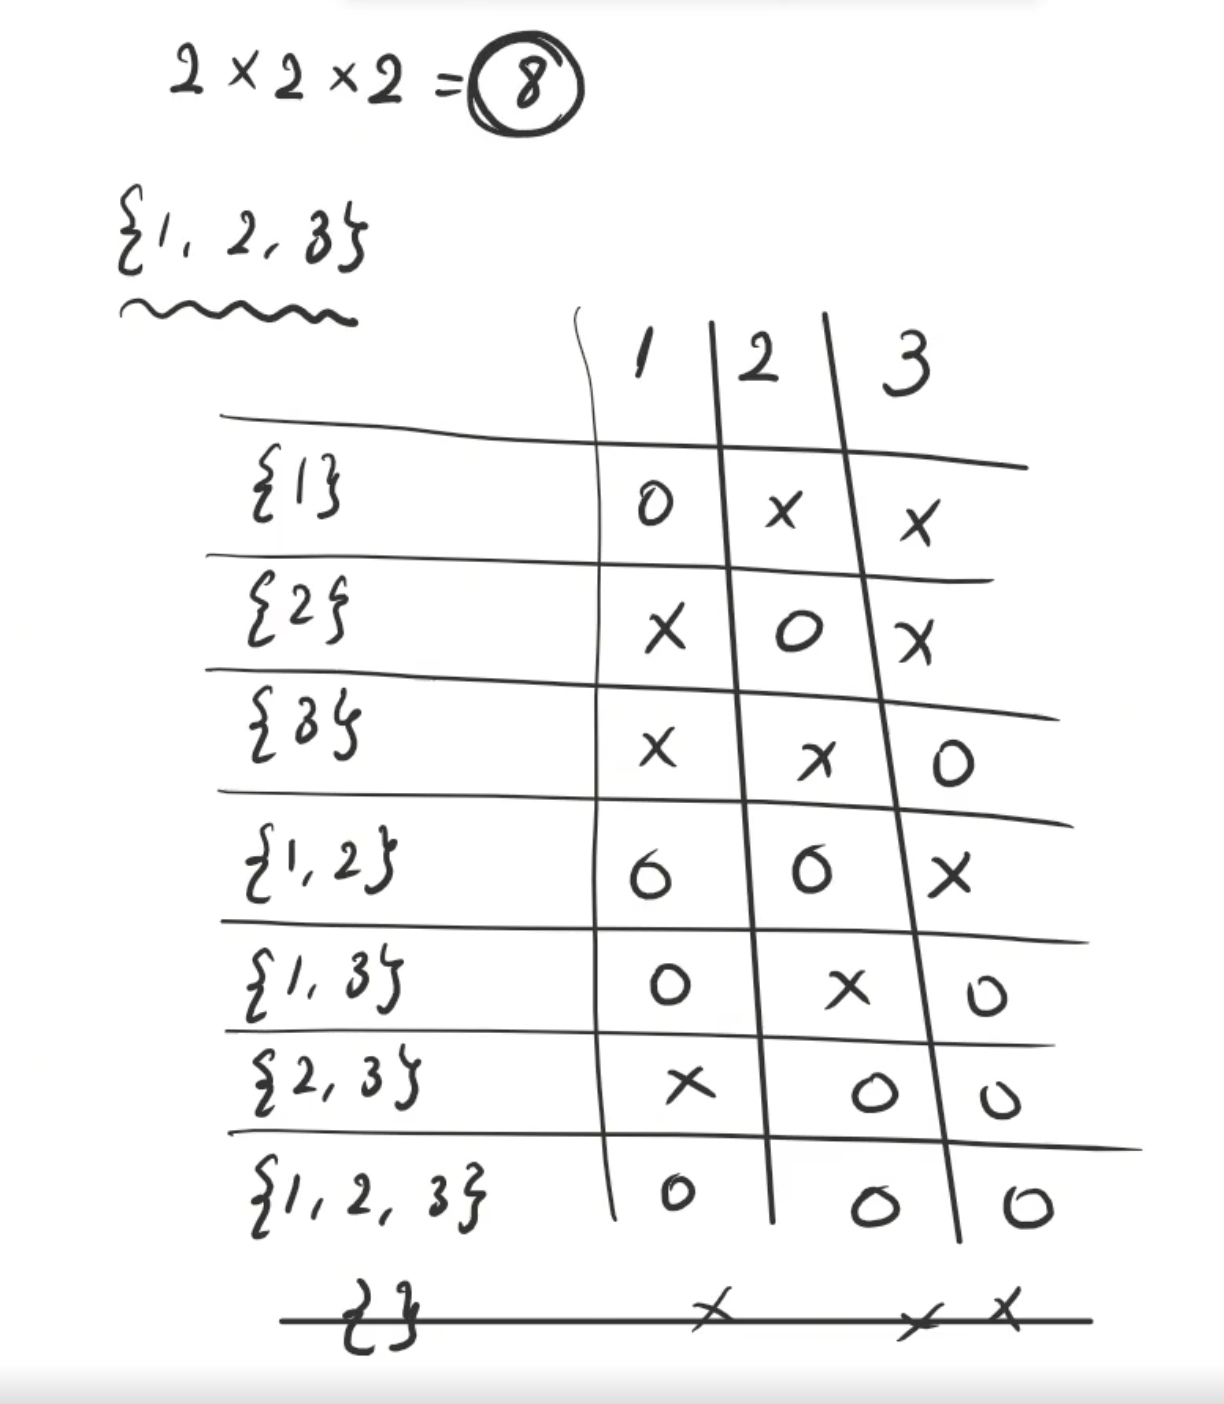 2 × 2 × 2 = 8
{1, 2, 3}
1 2 3
{1} O X X
{2} X O X
{3} X X O
{1, 2} O O X
{1, 3} O X O
{2, 3} X O O
{1, 2, 3} O O O
{} X X X